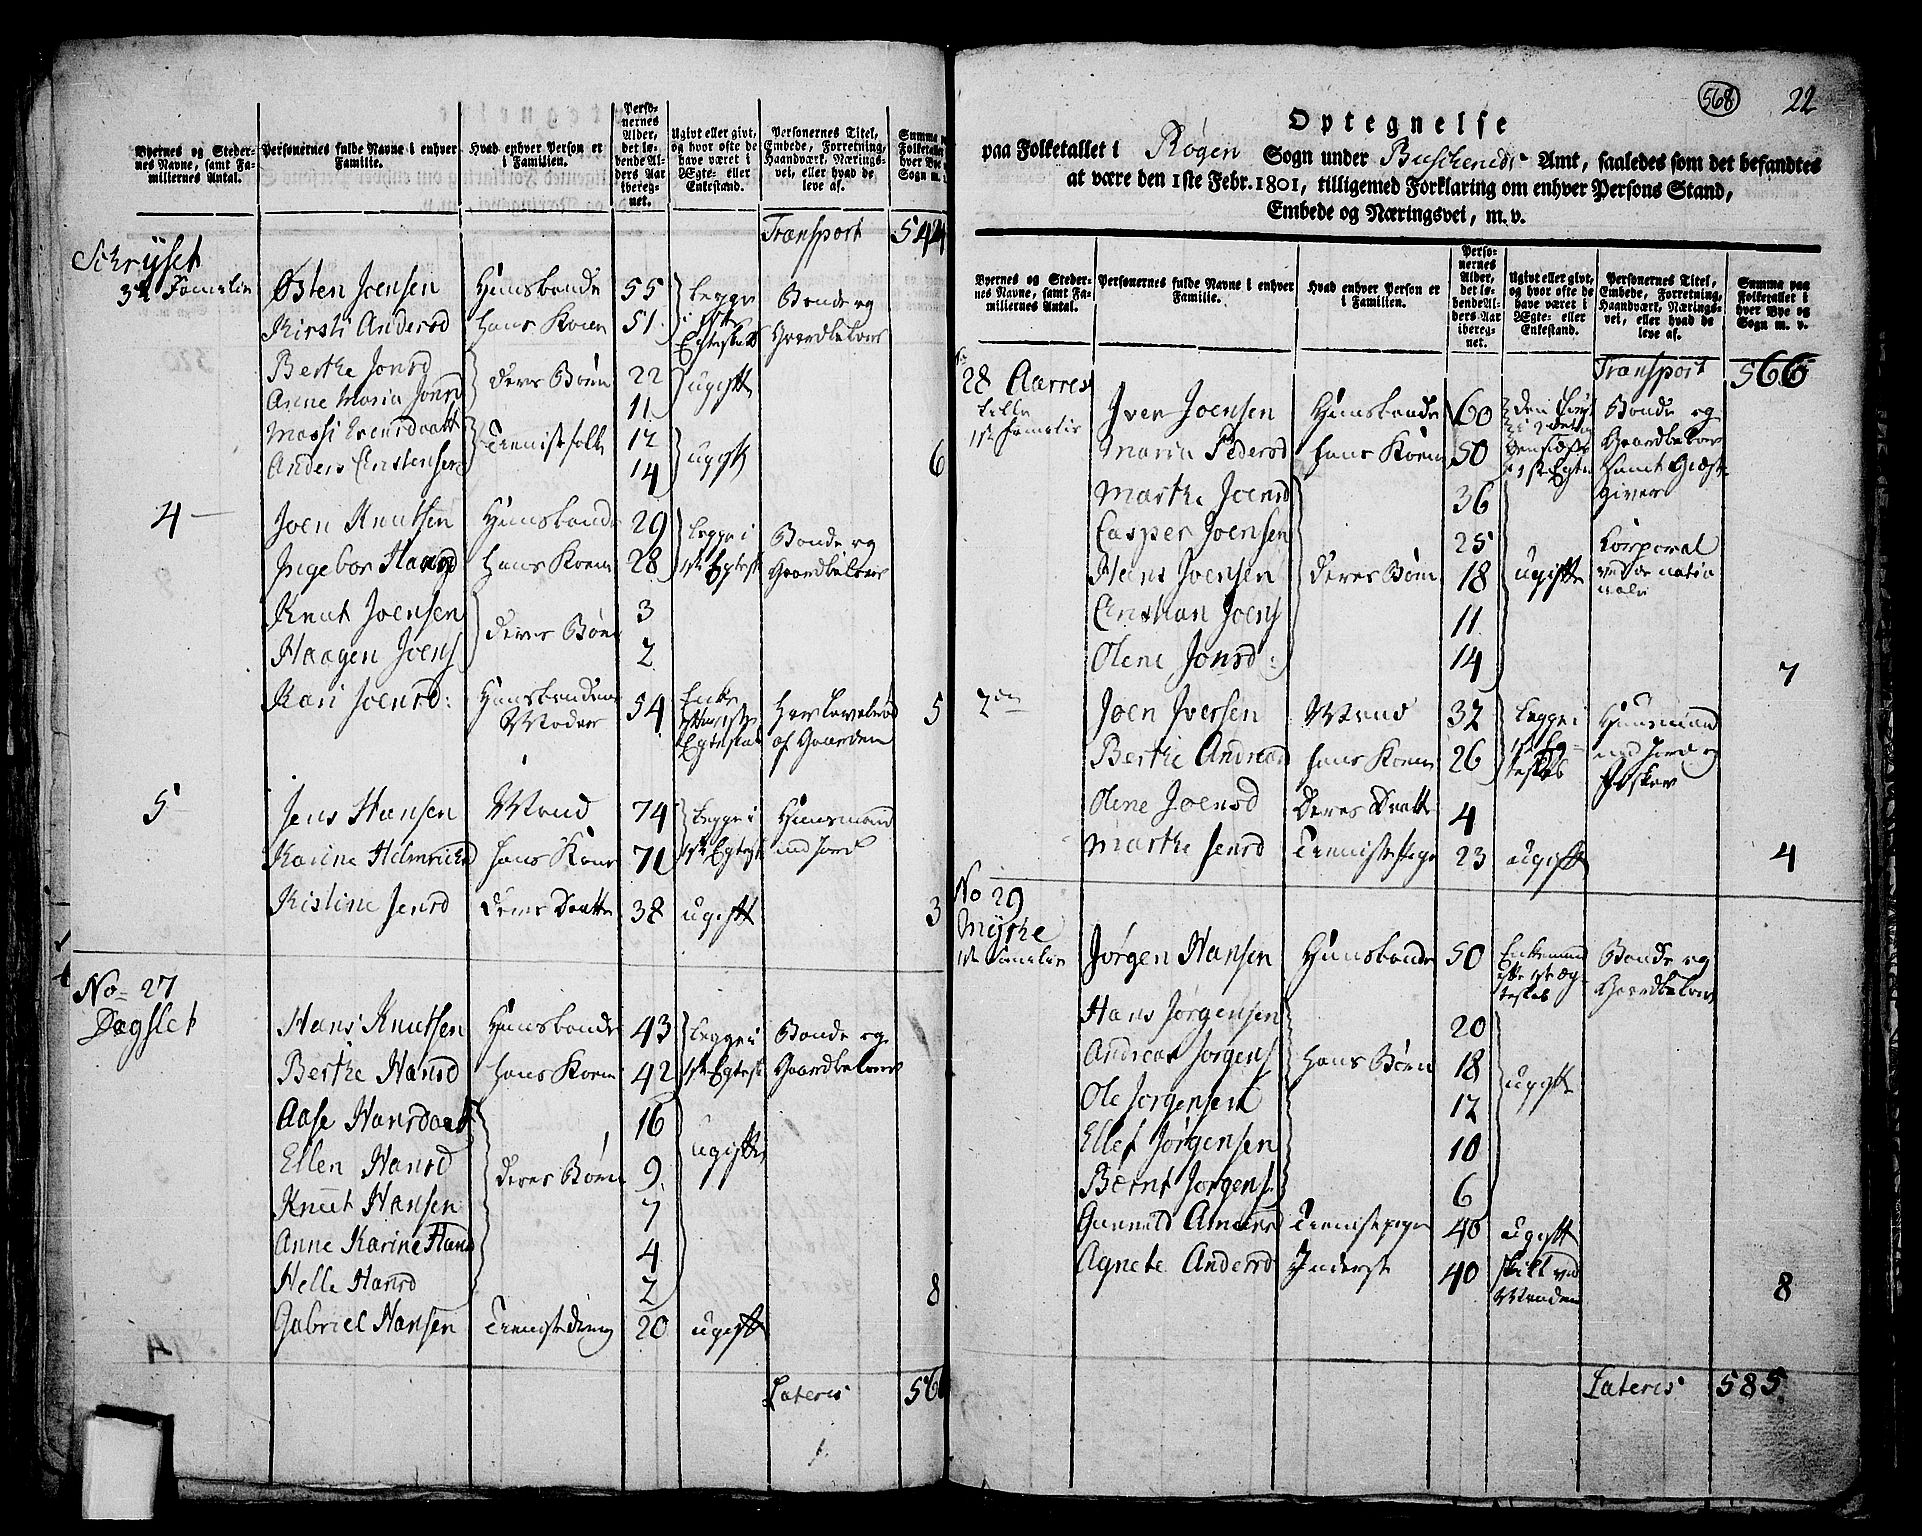 Byernes og Steder-
nes Navne, samt Fa-
miliernes Antal.
Personernes fulde Navne i enhver
Familie.
Hvad enhver Person er
i Familien.
Perso-
nernes
Alder,
det lø-
bende Al-
ders Aar
iberegnet.
Ugivt eller givt,
og hvor ofte de
have været i
Ægte- eller
Enkestand.
Personernes Titel,
Embede, Forretning,
Haandværk, Nærings-
vei, eller hvad de
leve af.
Transport 544
Schrýset
3de Familie Østen Joensen Huusbonde 55 begge Bonde og
Kirsti Andersd hans Kone 51 i 1ste Egteskab Gaardbeboer
Berthe Jonsd deres Børn 22 ugifte
Anne Maria Jonsd 11
Massi Evensdaatt Tienistefolk 12 ugift
Anders Cristensen 14 6
4 Joen Knutsen Huusbonde 29 begge i Bonde og
Ingebor Haagsd hans Kone 28 1ste Egtesk Gaardbeboer
Knut Joensen deres Børn 3
Haagen Joens 2
Kari Joensd: Huusbondens Moder 54 Enke efter 1ste Egteskab Har Levebrød af Gaarden 5
5 Jens Hansen Mand 74 begge i Huusmand
Karine Helmriksd hans Kone 71 1ste Egtesk med Jord
Kistine Jensd deres Daatter 38 ugift 3
No 27
Dagslet
Hans Knutsen Huusbonde 43 begge i Bonde og
Berthe Hansd hans Kone 42 1ste Egtesk Gaardbeboer
Aase Hansdaatt 16
Ellen Hansd deres Børn 9 ugifte
Knut Hansen 7
Anne Karine Hansd 4
Helle Hansd 2 8
Gabriel Hansen Tienistedreng 20 ugift
Lateris 566
568 22
Optegnelse
paa Folketallet i Røgen Sogn under Buscheruds Amt, saaledes som det befandtes
at være den 1ste Febr. 1801, tilligemed Forklaring om enhver Persons Stand,
Embede og Næringsvei, m. v.
Byernes og Steder-
nes Navne, samt Fa-
miliernes Antal.
Personernes fulde Navne i enhver
Familie.
Hvad enhver Person er
i Familien.
Perso-
nernes
Alder,
det lø-
bende Al-
ders Aar
ibereg-
net.
Ugivt eller givt,
og hvor ofte de
have været i
Ægte- eller
Enkestand.
Personernes Titel,
Embede, Forretning,
Haandværk, Nærings-
vei, eller hvad de
leve af.
Summa paa
Folketallet i
hver Bye og
Sogn m. v.
Transport 566
No 28 Aarres
Lille
1ste Familie
Iver Joensen Huusbonde 60 Bonde og
Maria Pedersd hans Kone 50 Gaardbeboer samt Giæst-
Marthe Joensd 36 giver
Casper Joensen 25 Corporal
Hans Joensen deres Børn 18 ugifte ved de natio
Cristian Joens 11 nale
Olene Jonsd: 14 7
2den Joen Iversen Mand 32 begge i Huusmand
Berthe Andread hans Kone 26 1ste Eg- teskab med Jord og Fisker
Olene Joensd Deres Daatter 4
Marthe Jensd Tienistepige 23 ugift 4
No 29
Myrhe
1ste Familie
Jørgen Hansen Huusbonde 50 Enkemand efter 1ste Æg- teskab Bonde og Gaardbeboer
Hans Jørgensen 20
Andreas Jørgens hans Børn 18 ugifte
Ole Jørgensen 12
Ellef Jørgensen 10
Bærnt Jørgens 6
Gunnild Amundsd Tienistepige 40 ugift
Agnete Andersd Inderst 40 skilt ved Manden 8
Lateris 585